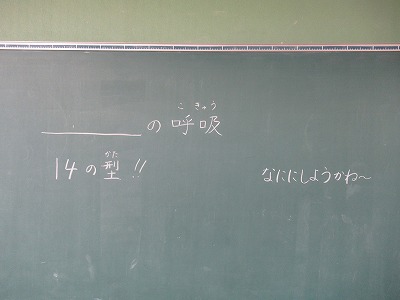 ______の呼吸
こ きゅう
14の型!!
かた
なににしようかわ~